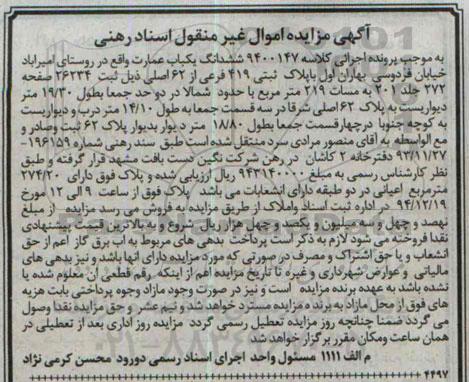 آگهی مزایده اموال غیر منقول اسناد رهنی
به موجب پرونده اجرائی کلاسه ۹۴۰۰۱۴۷ ششدانگ یکباب عمارت واقع در روستای امیراباد
خیابان فردوسی بهاران اول باپلاک ثبتی ۴۱۹ فرعی از ۶۲ اصلی ذیل ثبت ۲۶۲۳۴ صفحه
۲۷۲ جلد ۳۰۱ به مسات ۲۱۹ متر مربع با حدود شمالا در دو حد جمعا بطول ۱۹/۳۰ متر
دیواریست به پلاک ۶۲ اصلی شرقا در سه قسمت جمعا به طول ۱۴/۱۰ متر درب و دیواریست
به کوچه جنوبا درچهار قسمت جمعا بطول ۱۸/۸۰ متر دیوار بدیوار پلاک ۶۲ ثبت وصادر و
مع الواسطه به آقای منصور مرادی سرد منتقل شده است طبق سند رهنی شماره ۱۹۶۱۵۹-
۹۳/۱۱/۲۷ دفترخانه ۲ کاشان در رهن شرکت نگین دست بافت مشهد قرار گرفته و طبق
نظر کارشناس رسمی به مبلغ ۹۴۳۱۴۰۰۰۰ ریال ارزیابی شده و پلاک فوق دارای ۲۷۴/۲۰
مترمربع اعیانی در دو طبقه دارای انشعابات می باشد پلاک فوق از ساعت ۹ الی ۱۲ مورخ
۹۴/۱۲/۱۹ در اداره ثبت اسناد واملاک از طریق مزایده به فروش می رسد مزایده از مبلغ
نهصد و چهل و سه میلیون و یکصد و چهل هزار ریال شروع و به بالاترین قیمت پیشنهادی
نقدا فروخته می شود لازم به ذکر است پرداخت بدهی های مربوط به اب برق گاز اعم از حق
انشعاب و یا حق اشتراک و مصرف در صورتی که مورد مزایده دارای انها باشد و نیز بدهی های
مالیاتی و عوارض شهرداری و غیره تا تاریخ مزایده اعم از اینکه رقم قطعی ان معلوم شده یا
نشده باشد به عهده برنده مزایده است و نیز در صورت وجود مازاد وجوه پرداختی بابت هزینه
های فوق از محل مازاد به برنده مزایده مسترد خواهد شد و نیم عشر و حق مزایده نقدا وصول
می گردد ضمنا چنانچه روز مزایده تعطیل رسمی گردد مزایده روز اداری بعد از تعطیلی در
همان ساعت ومکان مقرر برگزار خواهد شد
م الف ۱۱۱۱ مسئول واحد اجرای اسناد رسمی دورود محسن کرمی نژاد
۴۴۹۷